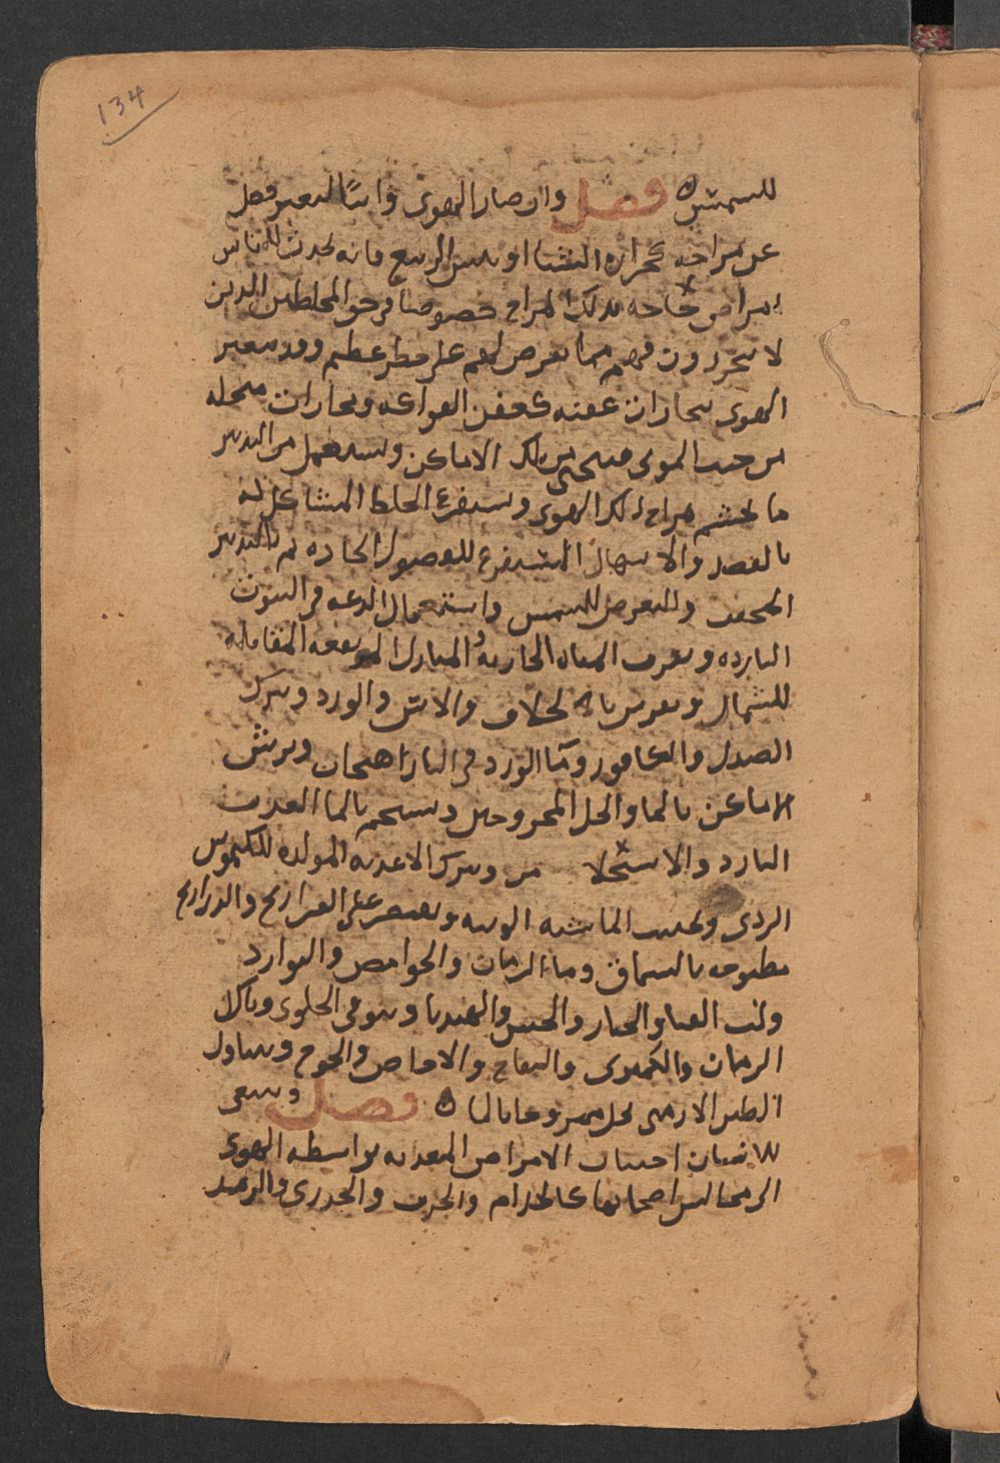 134
للشمس ه فصل وان صار الهوى وابتدا التغير فصل
عن مزاجه كحرارة الشتا او يبس الربيع فانه يحدث للناس
امراض خاصة بذلك المزاج خصوصا في حق المخلطين الذين
لا يتحررون فهم مما يعرض لهم على خطر عظيم وقد يتغير
الهوى ببخارات عفنه كعفن الفواكه وبخارات متحله
من جيف الموتى فيتنحى من تلك الاماكن ويستعمل من التدبير
ما يحسم مزاج ذلك الهوى ويستفرغ الخلط المشاكل له
بالفصد والاسهال المستفرغ للفضول الحاده ثم بالتدبير
المجفف والتعرض للشمس واستعمال الدعه في البيوت
البارده وبقرب المياه الجاريه والمنازل المرتفعه المقابله
للشمال ويفرش بالخلاف والاس والورد ويترك
الصندل والكافور وما الورد في البار اهنجان ويرش
الاماكن بالما والخل الممزوجين ويستحم بالما العذب
البارد والاستحلا من ويترك الاغديه المولده للكيموس
الردي ويجتنب الماشيه الوبيه ويقتصر على الفراريج والدراريج
مطبوخه بالسماق وما الرمان والحوامض والبوارد
ولب القثا والخيار والخس والهندبا ويتوقى الحلوى وياكل
الرمان والكمثرى والتفاح والاجاص والخوخ ويتناول
الطين الارمني بخل ممزوجا بالما ه فصل وينبغي
للانسان اجتناب الامراض المعديه بواسطه الهوى
الرمحالس اصحابها كالجذام والجرب والجدري والرمد